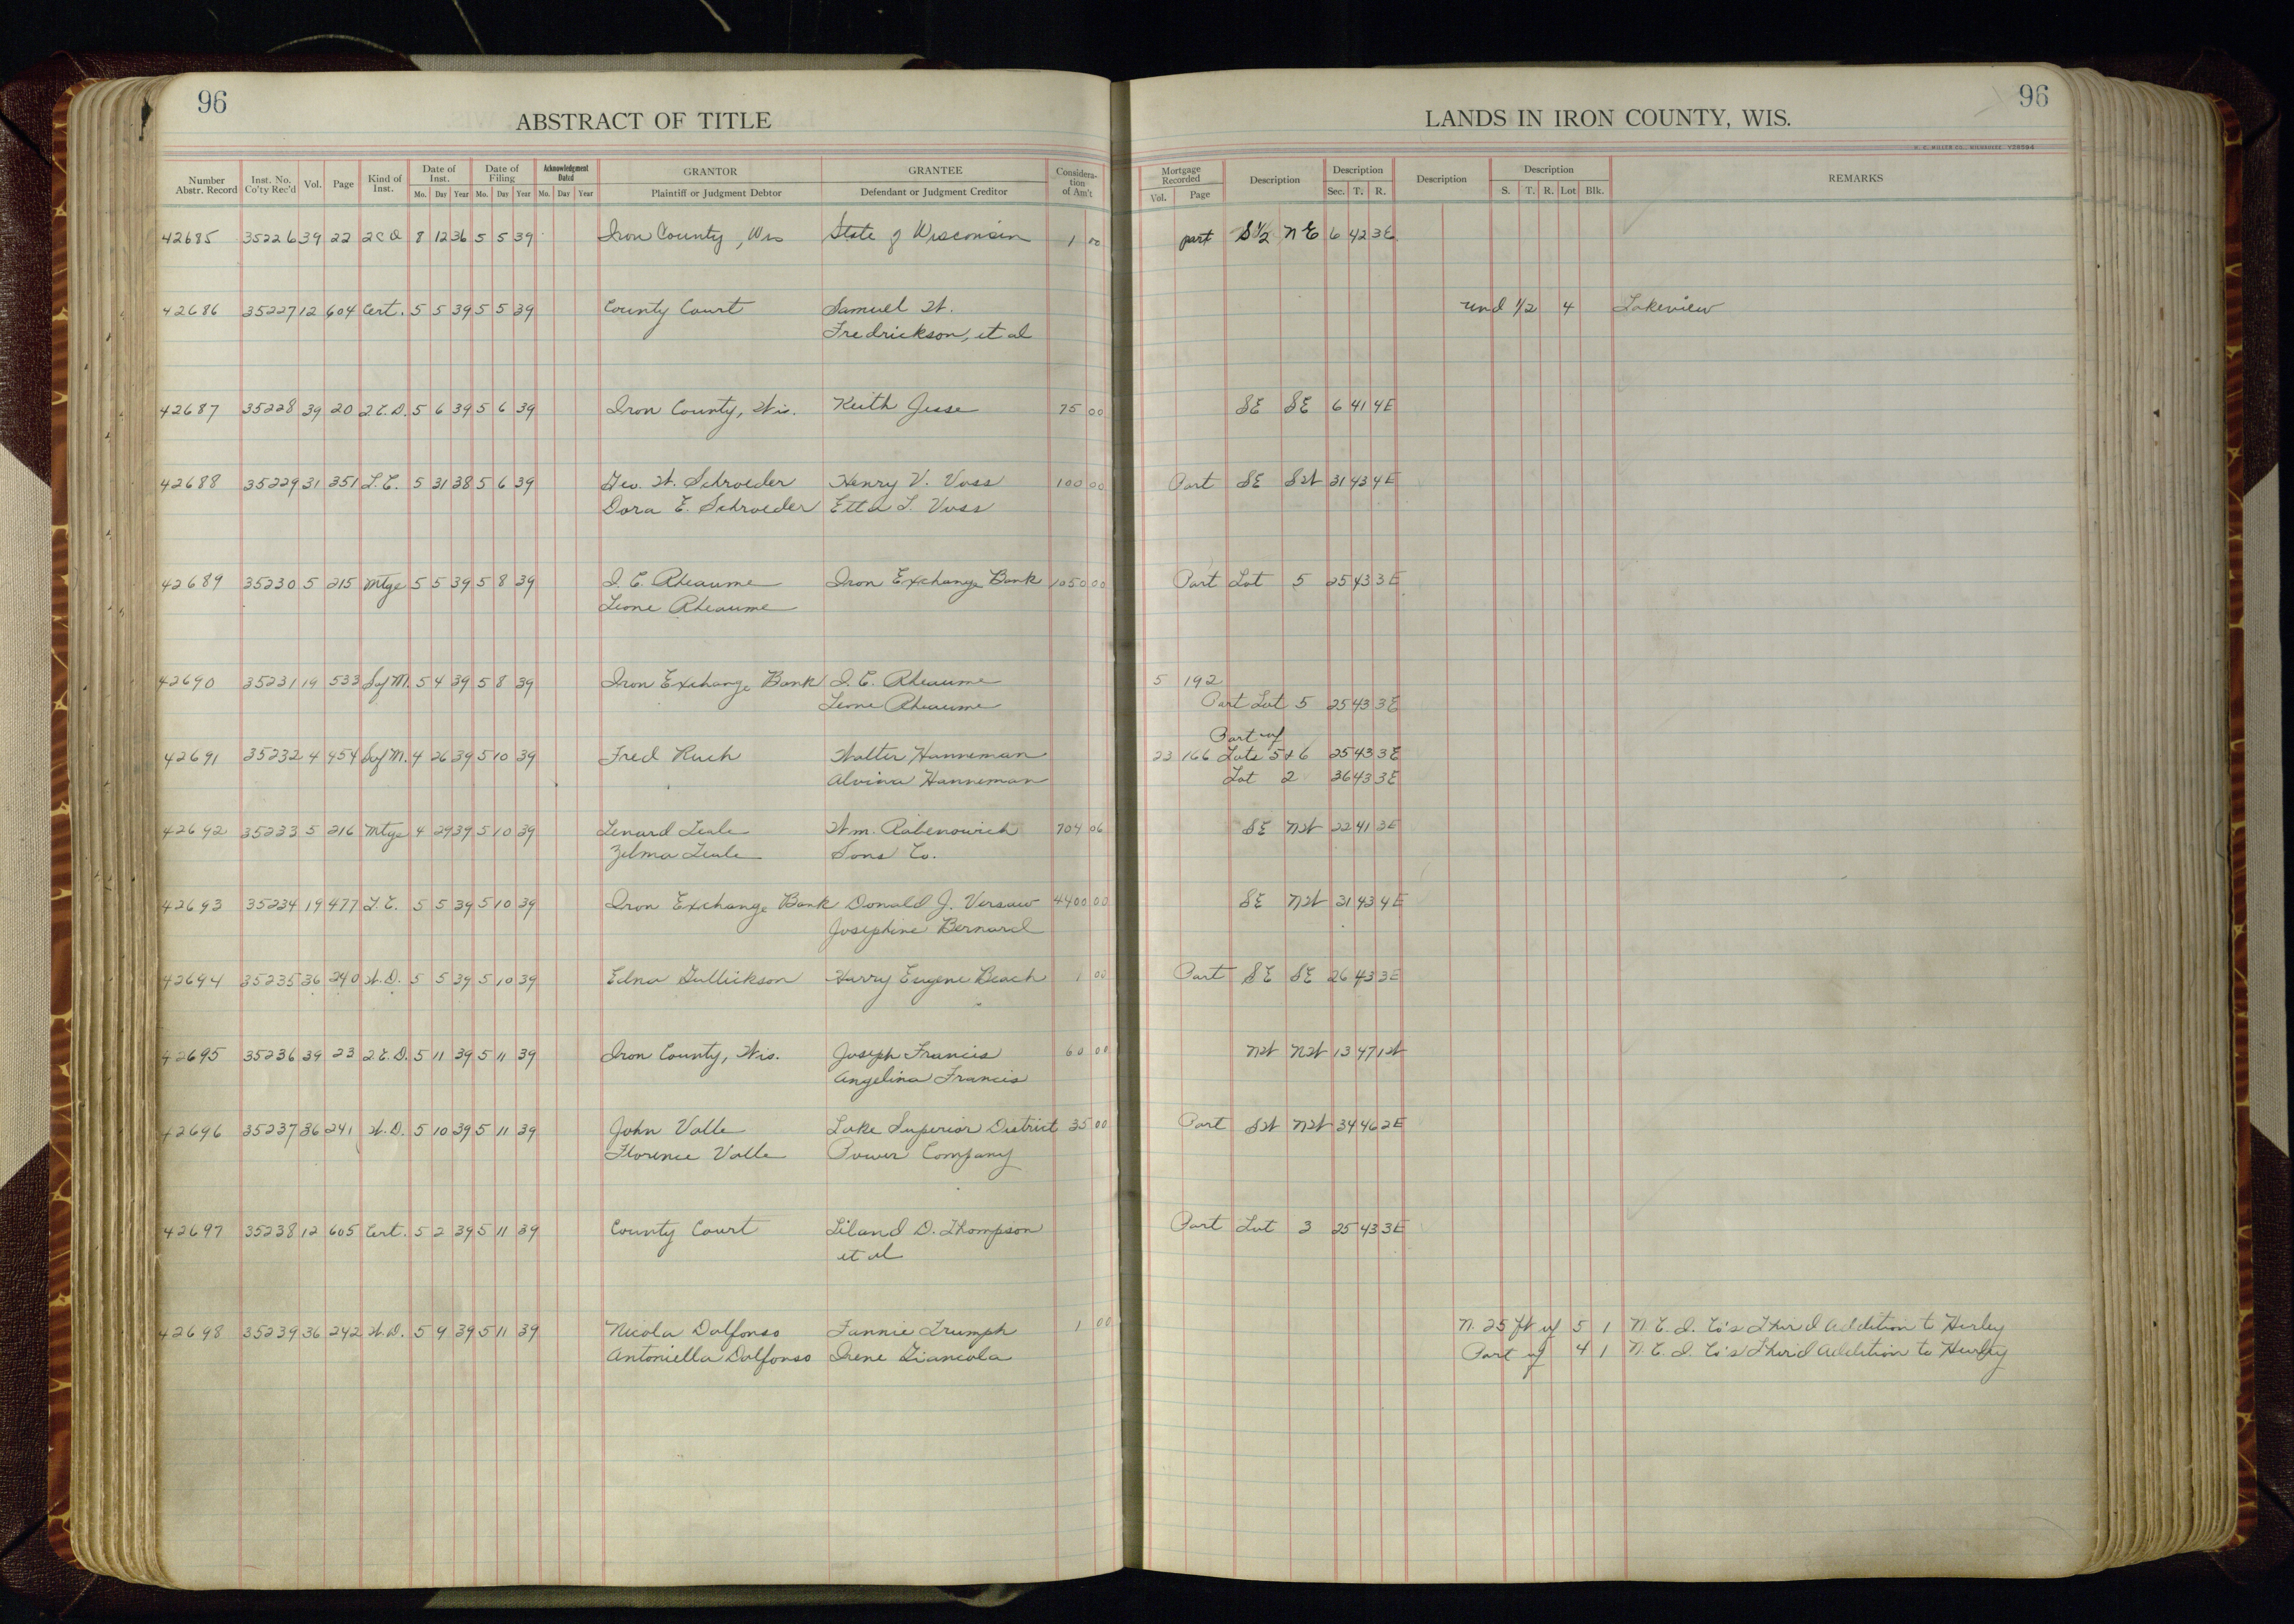 96
ABSTRACT OF TITLE
LANDS IN IRON COUNTY, WIS.
96
H. C. MILLER CO., MILWAUKEE
Number Abstr. Record Inst. No. Co'ty Rec'd Vol. Page Kind of Inst. Date of Inst. Mo. Day Year Date of Filing Mo. Day Year Acknowledgment Dated Mo. Day Year GRANTOR Plaintiff or Judgment Debtor GRANTEE Defendant or Judgment Creditor Considera-tion of Am't Mortgage Recorded Vol. Page Description Description Sec. T. R. Description Description S. T. R. Lot Blk. REMARKS
42685 35226 39 22 2CD 8 12 36 5 5 39 Iron County, Wis State of Wisconsin 1 00 part S 1/2 NE 6 42 3E
42686 35227 12 604 Cert. 5 5 39 5 5 39 County Court Samuel W. und 1/2 4 Lakeview
Fredrickson, et al
42687 35228 39 20 2.C.D. 5 6 39 5 6 39 Iron County, Wis. Keith Jesse 75 00 SE SE 6 41 4E
42688 35229 31 351 L.C. 5 31 38 5 6 39 Geo. W. Schroeder Henry V. Voss 100 00 Part SE SW 31 43 4E
Dora E. Schroeder Etta L. Voss
42689 35230 5 215 Mtge 5 5 39 5 8 39 I. C. Rheaume Iron Exchange Bank 1050 00 Part Lot 5 25 43 3E
Leone Rheaume
42690 35231 19 533 Sat M. 5 4 39 5 8 39 Iron Exchange Bank I. C. Rheaume 5 192
Leone Rheaume Part Lot 5 25 43 3E
Part of
42691 35232 4 454 Sat M. 4 26 39 5 10 39 Fred Ruch Walter Hanneman 23 166 Lots 5 & 6 25 43 3E
Alvina Hanneman Lot 2 36 43 3E
42692 35233 5 216 Mtge 4 29 39 5 10 39 Lenard Leale Wm. Rabenowich 704 06 SE NW 22 41 3E
Zelma Leale Sons Co.
42693 35234 19 477 L.C. 5 5 39 5 10 39 Iron Exchange Bank Donald J. Versaw 4400 00 SE NW 31 43 4E
Josephine Bernard
42694 35235 36 240 W.D. 5 5 39 5 10 39 Edna Gullickson Harry Eugene Beach 1 00 Part SE SE 26 43 3E
42695 35236 39 23 2.C.D. 5 11 39 5 11 39 Iron County, Wis. Joseph Francis 60 00 NW NW 13 47 1W
Angelina Francis
42696 35237 36 241 W.D. 5 10 39 5 11 39 John Valle Lake Superior District 35 00 Part SW NW 34 46 2E
Florence Valle Power Company
42697 35238 12 605 Cert. 5 2 39 5 11 39 County Court Leland D. Thompson Part Lot 3 25 43 3E
et al
42698 35239 36 242 W.D. 5 9 39 5 11 39 Nicola Dalfonso Fannie Trumph 1 00 N. 25 ft of 5 1 N. C. I. Co's Third Addition to Hurley
Antoniella Dalfonso Irene Giancola Part of 4 1 N. C. I. Co's Third Addition to Hurley